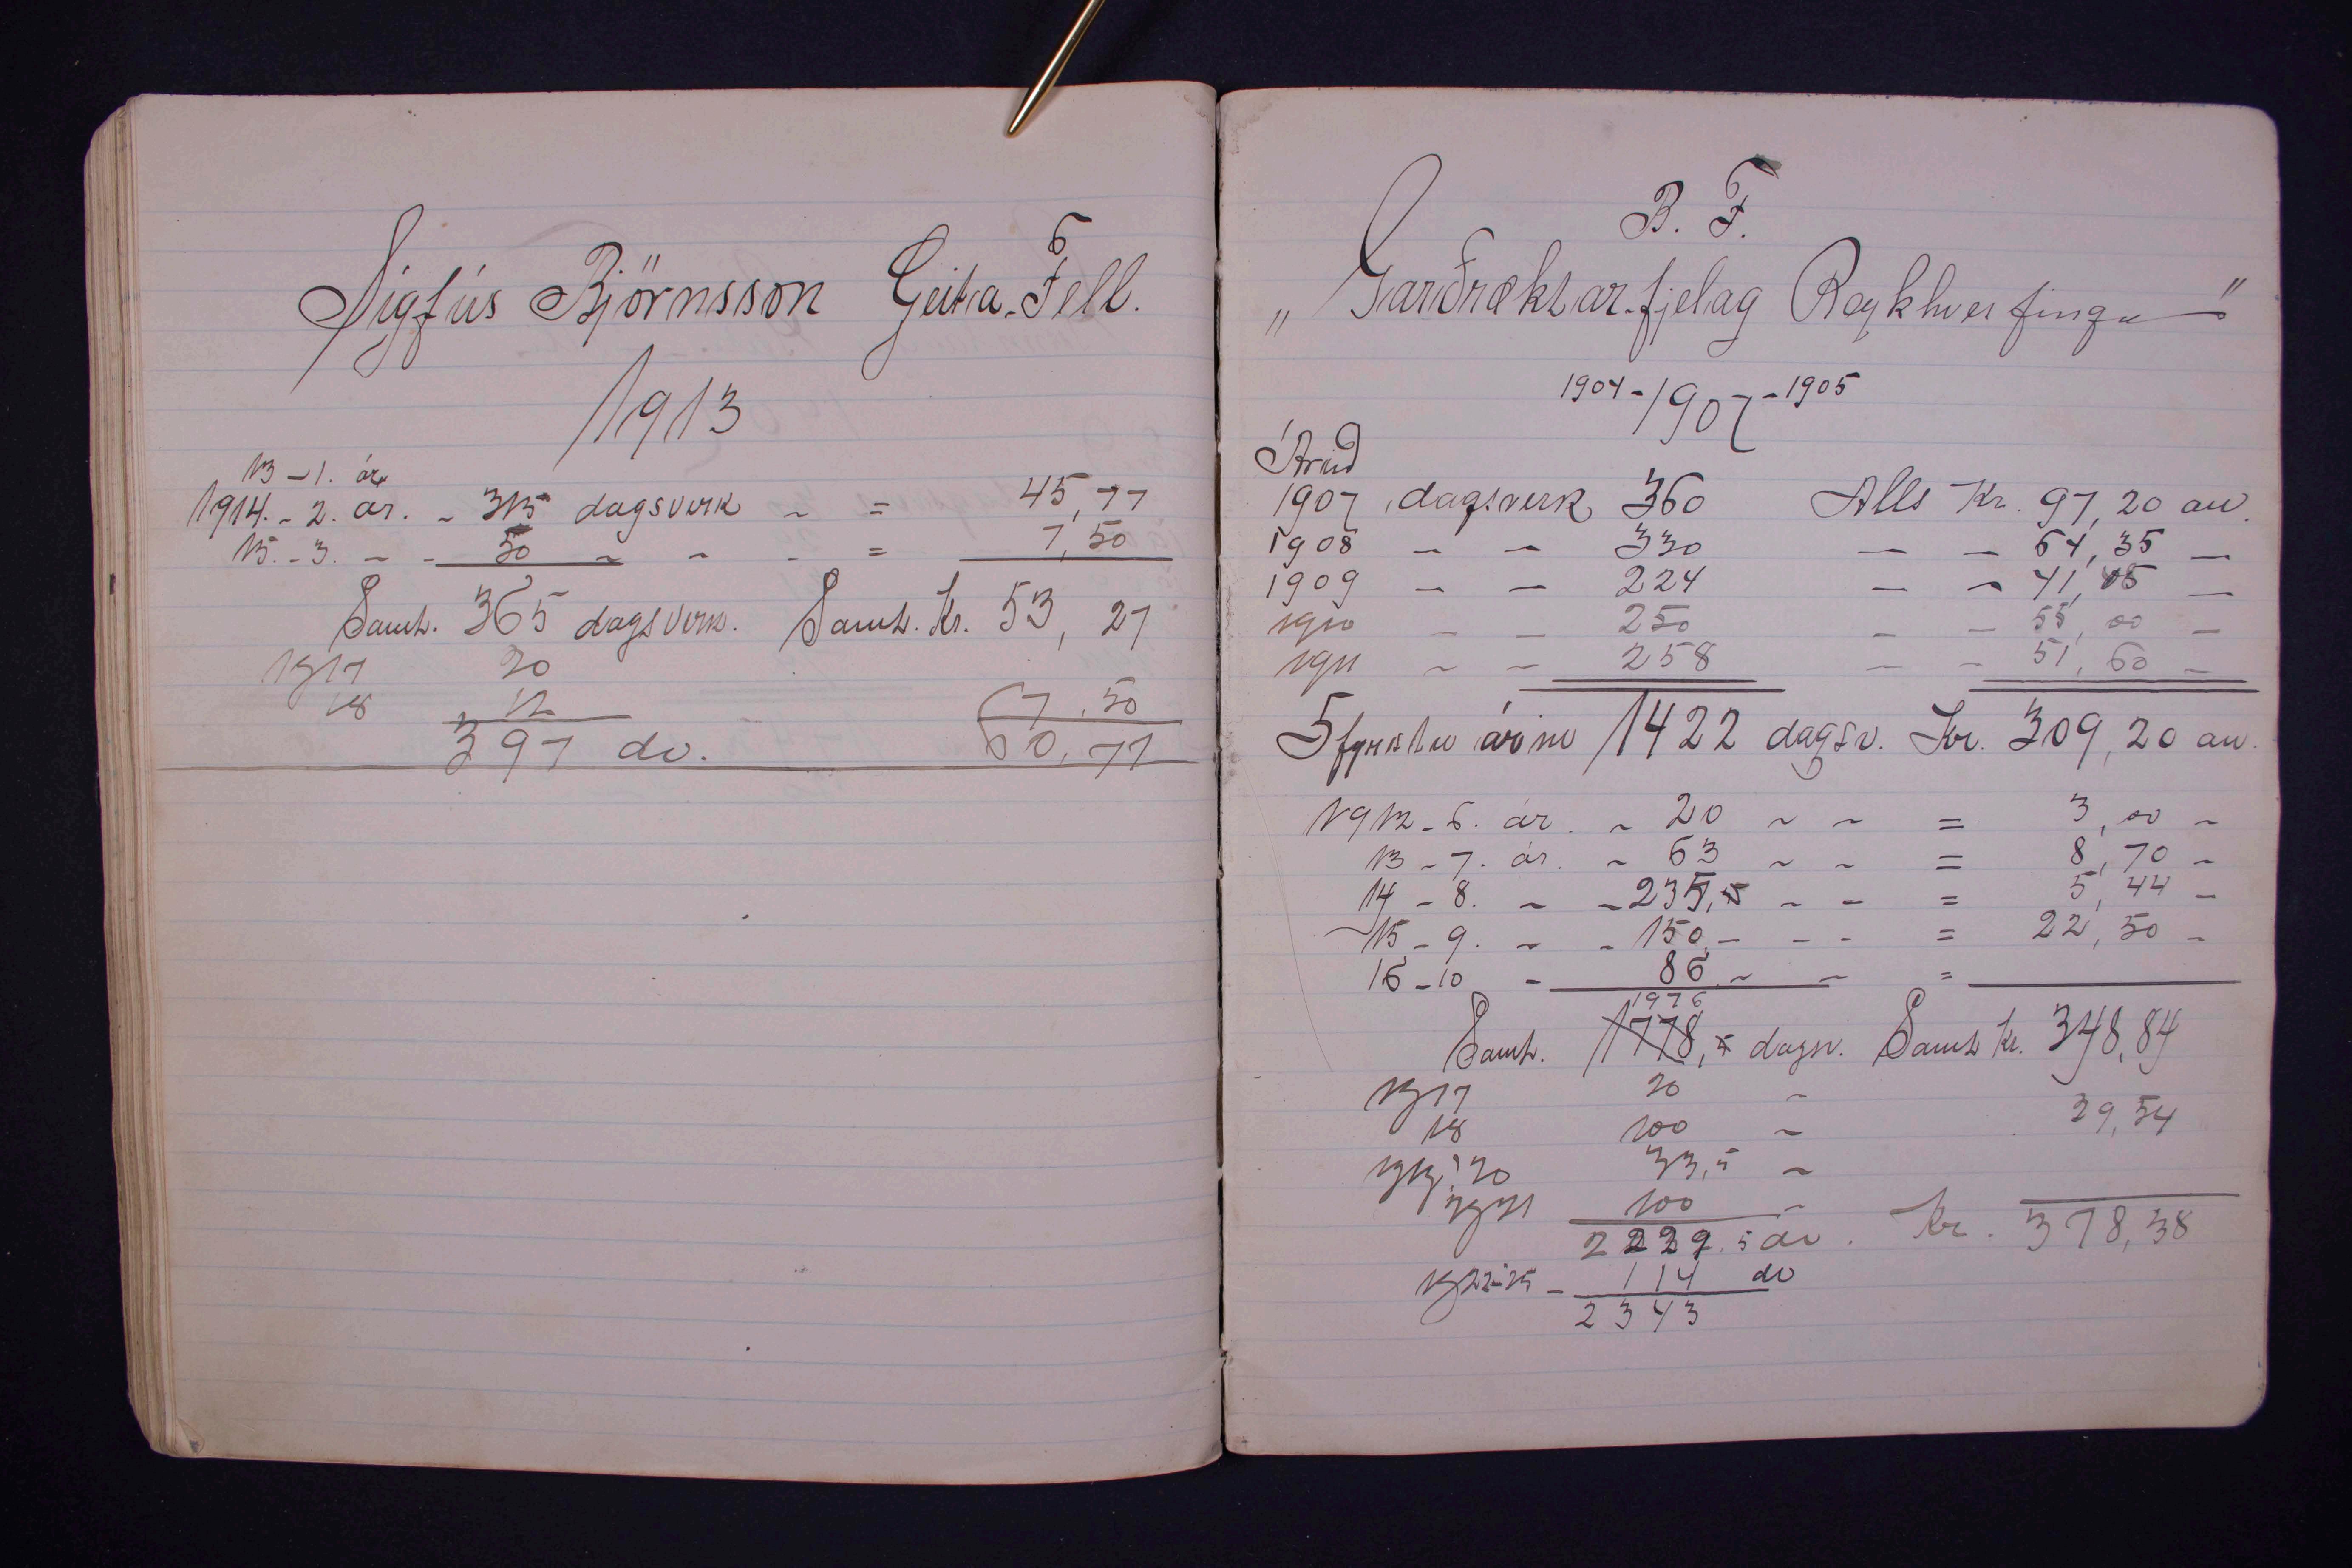 Sigfús Björnsson Geita-Fell.
1913
13 - 1. ár
1914. - 2. ár. - 315 dagsverk - = 45,77
15. - 3. - - 50 - - - = 7,50
Samt. 365 dagsverk. Samt. Kr. 53,27
1917 20
18 12 7.50
397 do. 60,77
B. F.
„Garðræktar-fjelag Reykhverfinga"
1904 - 1907 - 1905
Árið
1907 dagsverk 360 Alls Kr. 97,20 au.
1908 - - 330 - - 64,35 -
1909 - - 224 - - 41,05 -
1910 - - 250 - - 55,00 -
1911 - - 258 - - 51,60 -
5 fyrstu árin 1422 dagsv. Kr. 309,20 au.
1912 - 6. ár. - 20 - - = 3,00 -
13 - 7. ár. - 63 - - = 8,70 -
14 - 8. - - 235,5 - - = 5,44 -
15 - 9. - - 150 - - - = 22,50 -
16 - 10 - 86 - - =
1976
Samt. 1778,5 dagsv. Samt Kr. 348,84
1917 20 -
18 100 - 29,54
1919-20 33,5 -
1921 100 -
2229.5 do. Kr. 378,38
1922-25 - 114 do
2343